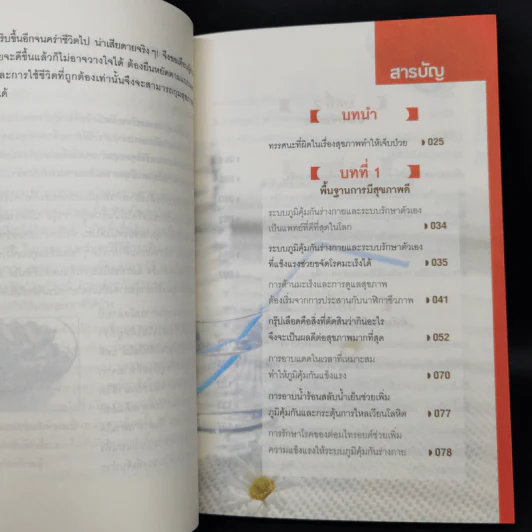 ริบขึ้นอีกจนคร่าชีวิตไป น่าเสียดายจริงๆ! จึงขอเตือน
จะดีขึ้นแล้วก็ไม่อาจวางใจได้ ต้องยืนหยัด
และการใช้ชีวิตที่ถูกต้องเท่านั้นจึงจะสามารถกุมสุข
ได้
สารบัญ
บทนำ
ทรรศนะที่ผิดในเรื่องสุขภาพทำให้เจ็บป่วย 025
บทที่ 1
พื้นฐานการมีสุขภาพดี
ระบบภูมิคุ้มกันร่างกายและระบบรักษาตัวเอง
เป็นแพทย์ที่ดีที่สุดในโลก 034
ระบบภูมิคุ้มกันร่างกายและระบบรักษาตัวเอง
ที่แข็งแรงช่วยขจัดโรคมะเร็งได้ 035
การต้านมะเร็งและการดูแลสุขภาพ
ต้องเริ่มจากการประสานกับนาฬิกาชีวภาพ 041
กรุ๊ปเลือดคือสิ่งที่ตัดสินว่ากินอะไร
จึงจะเป็นผลดีต่อสุขภาพมากที่สุด 052
การอาบแดดในเวลาที่เหมาะสม
ทำให้ภูมิคุ้มกันแข็งแรง 070
การอาบน้ำร้อนสลับน้ำเย็นช่วยเพิ่ม
ภูมิคุ้มกันและกระตุ้นการไหลเวียนโลหิต 077
การรักษาโรคของต่อมไทรอยด์ช่วยเพิ่ม
ความแข็งแรงให้ระบบภูมิคุ้มกันร่างกาย 078